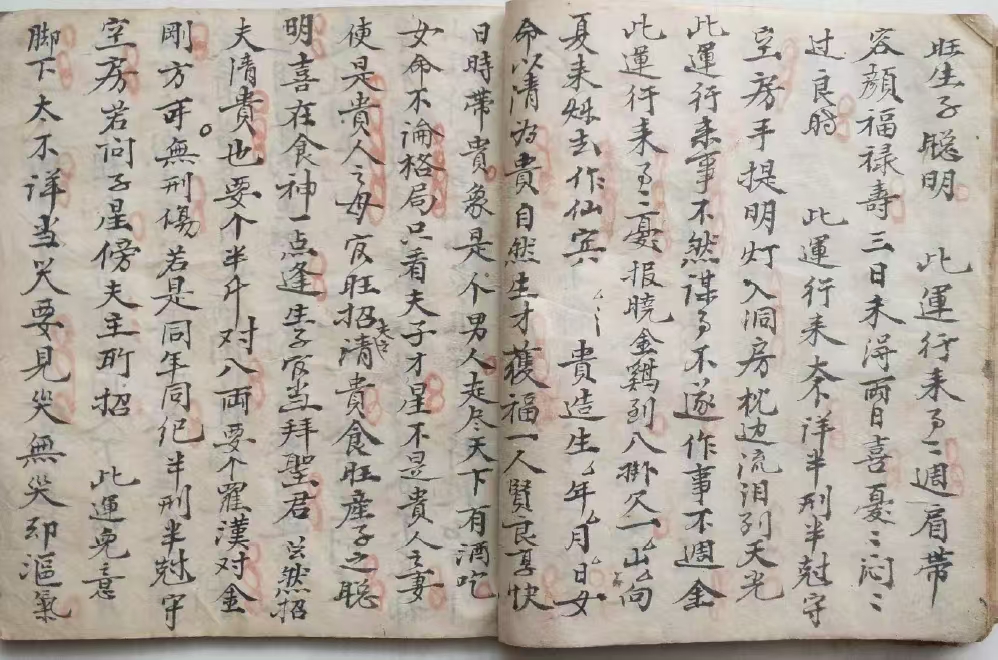 旺生子聪明　此運行来事二週眉带
容顔福禄壽三日未得兩日喜憂二闷二
过良时　此運行来奈祥半刑半尅守
空房手提明灯入洞房枕边流泪到天光
此運行来事不然謀事不遂作事不週全
此運行来事二憂报晓金鷄到八掛欠一山向
夏来秋去作仙宾　貴造生年月日女
命以清为貴自然生才獲福一人賢良享快
日時带貴象是个男人走尽天下有酒吃
女命不論格局只看夫子才星不是貴人妻
使是貴人之母官旺招夫清貴食旺産子之聪
明喜在食神一点逢生子官当拜聖君公然招
夫清貴也要个半斤对八両要个羅漢对金
剛方可無刑傷若是同年同纪半刑半尅守
空房若问子星傍夫主所招　此運免意
脚下太不详当哭要見哭無哭却漚氣